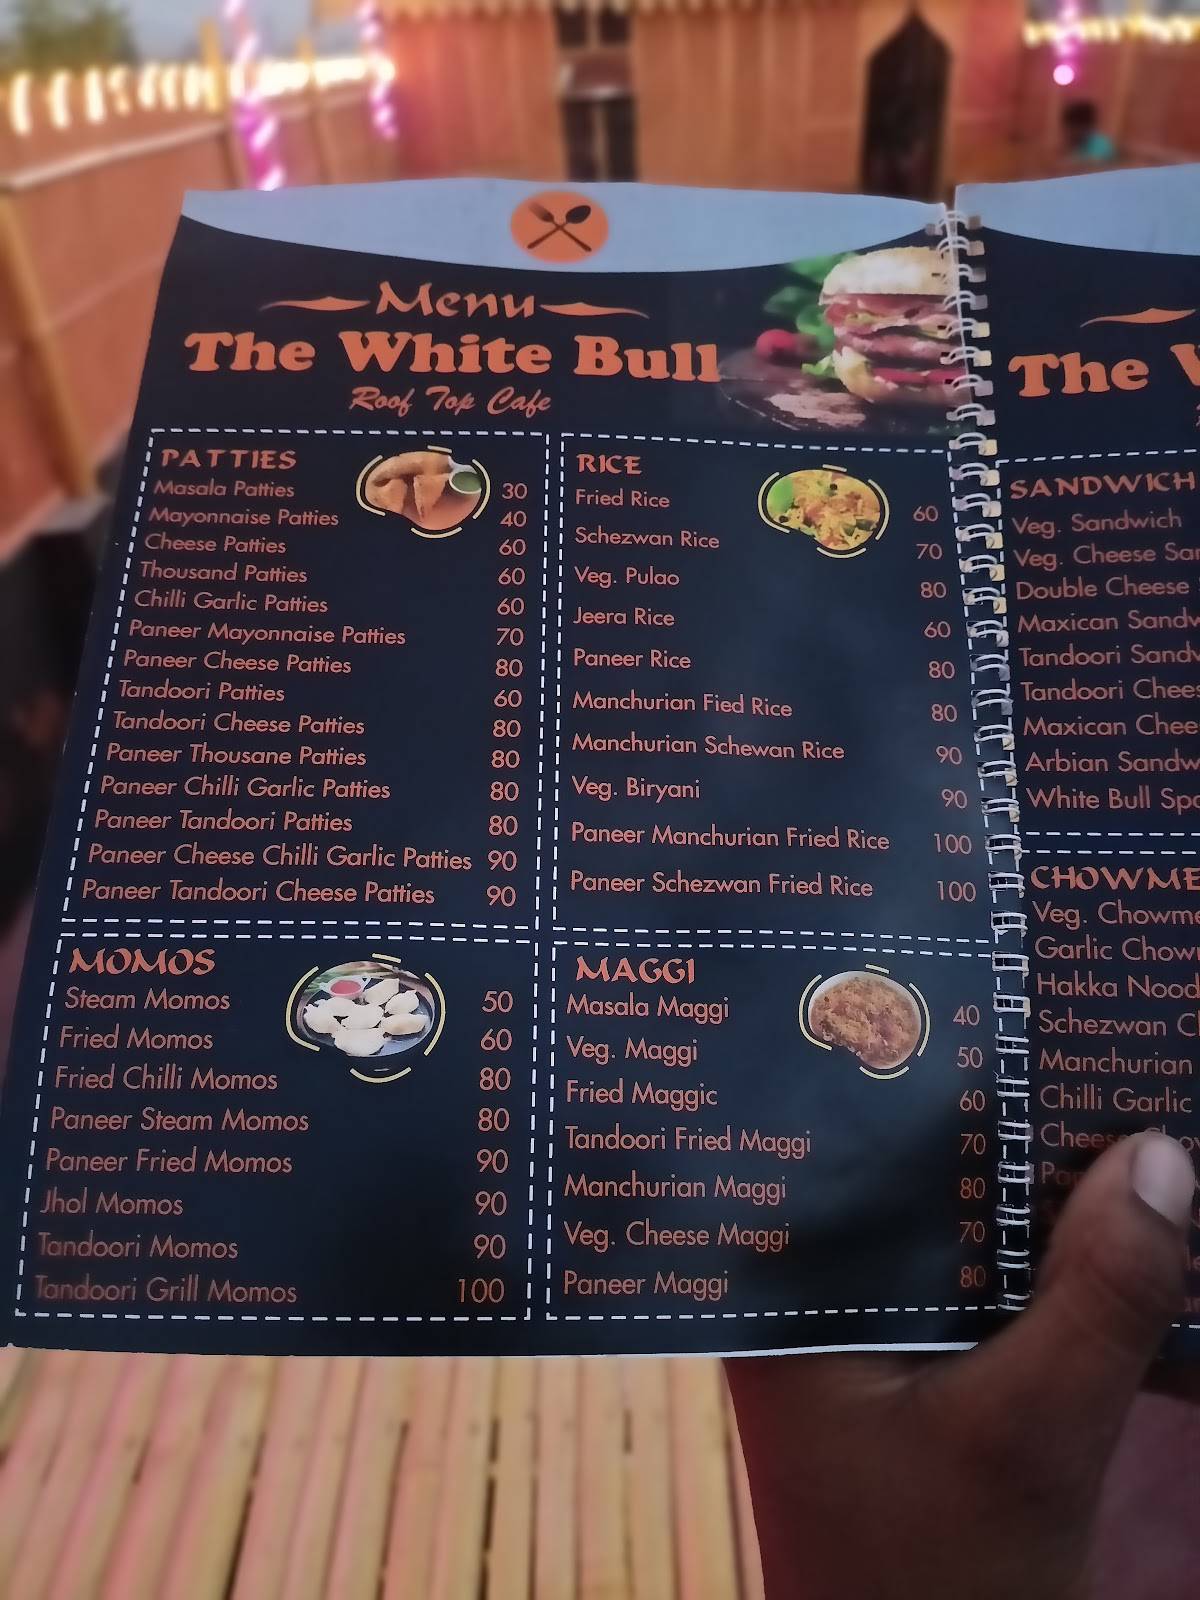 Menu
The White Bull
Roof Top Cafe
PATTIES
Masala Patties 30
Mayonnaise Patties 40
Cheese Patties 60
Thousand Patties 60
Chilli Garlic Patties 60
Paneer Mayonnaise Patties 70
Paneer Cheese Patties 80
Tandoori Patties 60
Tandoori Cheese Patties 80
Paneer Thousane Patties 80
Paneer Chilli Garlic Patties 80
Paneer Tandoori Patties 80
Paneer Cheese Chilli Garlic Patties 90
Paneer Tandoori Cheese Patties 90
MOMOS
Steam Momos 50
Fried Momos 60
Fried Chilli Momos 80
Paneer Steam Momos 80
Paneer Fried Momos 90
Jhol Momos 90
Tandoori Momos 90
Tandoori Grill Momos 100
RICE
Fried Rice 60
Schezwan Rice 70
Veg. Pulao 80
Jeera Rice 60
Paneer Rice 80
Manchurian Fied Rice 80
Manchurian Schewan Rice 90
Veg. Biryani 90
Paneer Manchurian Fried Rice 100
Paneer Schezwan Fried Rice 100
MAGGI
Masala Maggi 40
Veg. Maggi 50
Fried Maggic 60
Tandoori Fried Maggi 70
Manchurian Maggi 80
Veg. Cheese Maggi 70
Paneer Maggi 80
The
SANDWICH
Veg. Sandwich
Veg. Cheese
Double Cheese
Maxican
Tandoori
Tandoori
Maxican
Arbian
White Bull
Veg.
Garlic
Hakka
Schezwan
Manchurian
Chilli Garlic